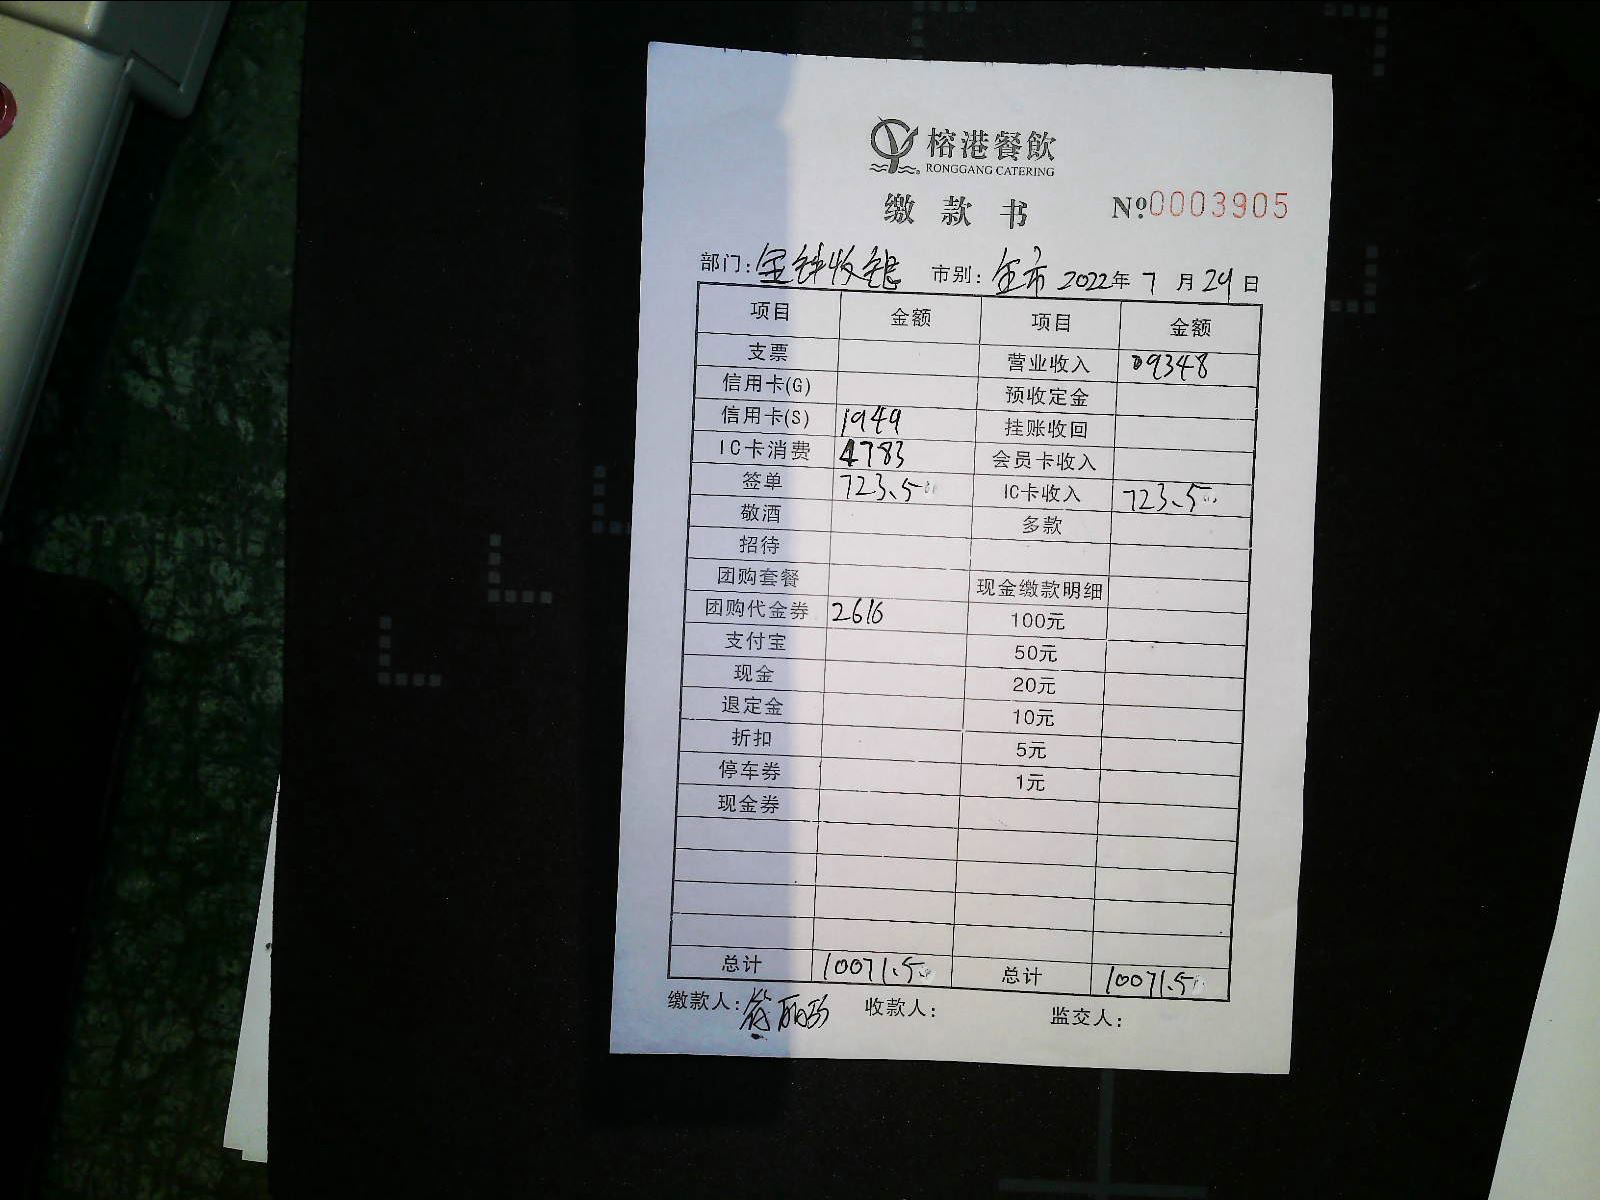 榕港餐飲
RONGGANG CATERING
缴款书 №0003905
部门: 金钟收银 市别: 全市 2022年 7 月 24 日
项目 金额 项目 金额
支票 营业收入 9348
信用卡(G) 预收定金
信用卡(S) 1949 挂账收回
IC卡消费 4783 会员卡收入
签单 723.5 IC卡收入 723.5
敬酒 多款
招待
团购套餐 现金缴款明细
团购代金券 2616 100元
支付宝 50元
现金 20元
退定金 10元
折扣 5元
停车券 1元
现金券
总计 10071.5 总计 10071.5
缴款人: 收款人: 监交人: